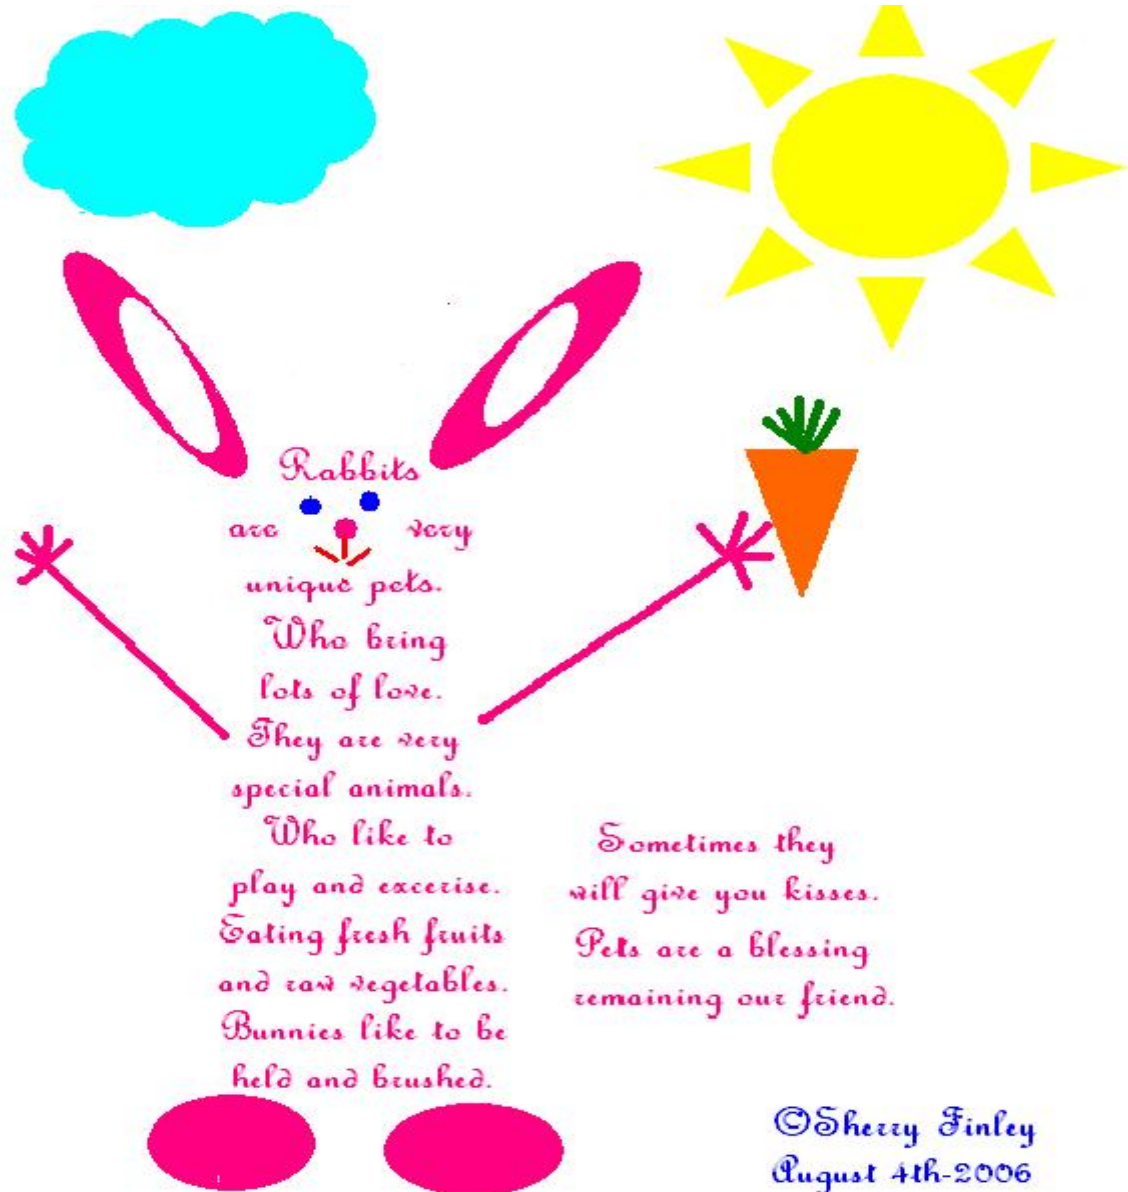 Rabbits
are very
unique pets.
Who bring
lots of love.
They are very
special animals.
Who like to
play and excerise.
Eating fresh fruits
and raw vegetables.
Bunnies like to be
held and brushed.
Sometimes they
will give you kisses.
Pets are a blessing
remaining our friend.
©Sherry Finley
August 4th-2006